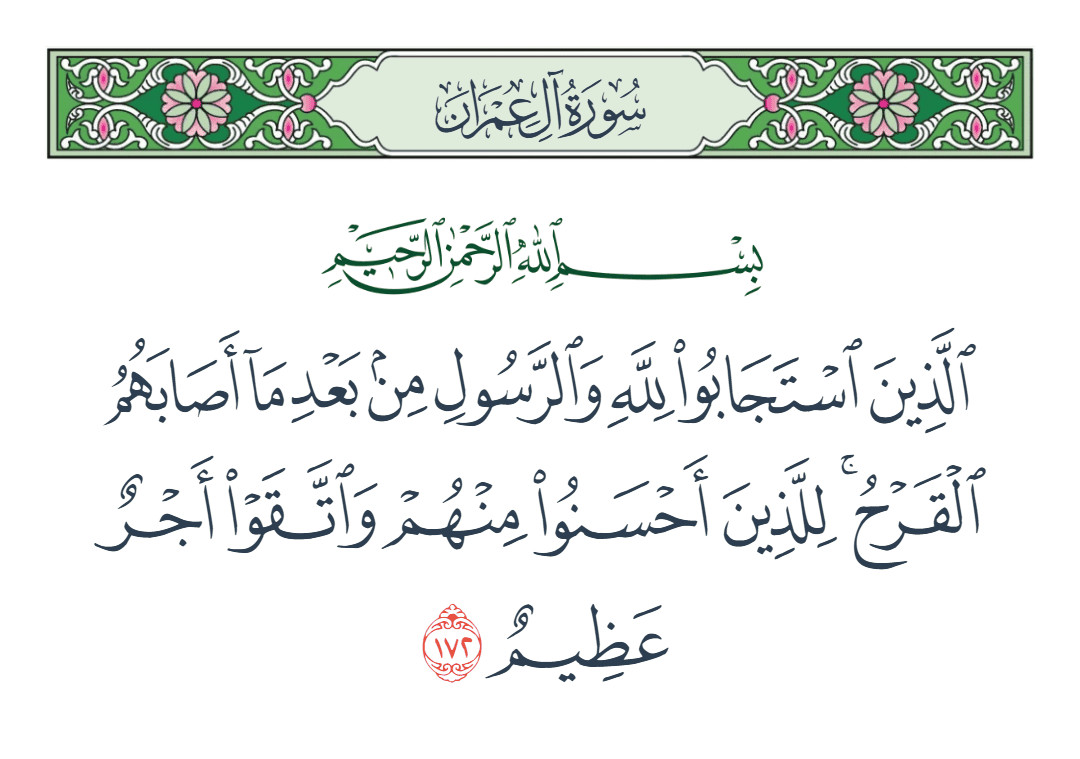 سُورَةُ آلِ عِمْرَانَ
بِسْمِ ٱللَّهِ ٱلرَّحْمَٰنِ ٱلرَّحِيمِ
ٱلَّذِينَ ٱسْتَجَابُوا۟ لِلَّهِ وَٱلرَّسُولِ مِنۢ بَعْدِ مَآ أَصَابَهُمُ
ٱلْقَرْحُ ۚ لِلَّذِينَ أَحْسَنُوا۟ مِنْهُمْ وَٱتَّقَوْا۟ أَجْرٌ
عَظِيمٌ ١٧٢